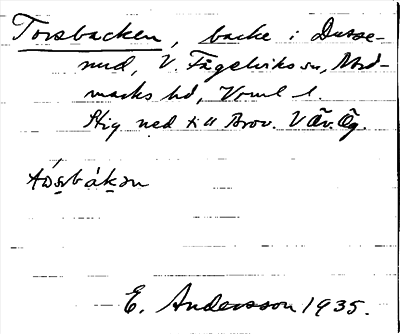 Torsbacken, backe i Dusse-
rud, V. Fågelviks sn, Nord-
marks hd, Vrml l.
Stig ned till Brov. V Öv. Ög.
tósbákən
E. Andersson 1935.